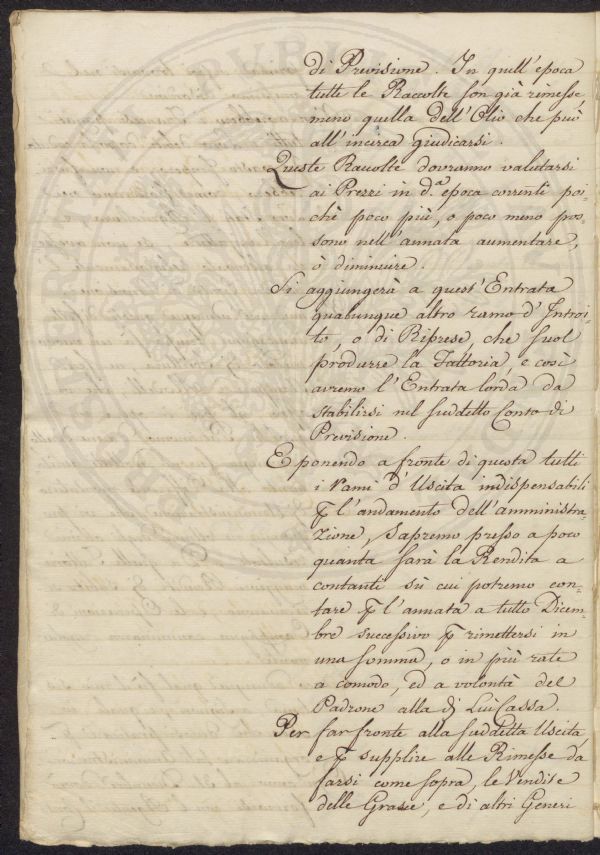 di Previsione. In quell'epoca
tutte le Raccolte son già rimesse
meno quella dell'Olio che può
all'incirca giudicarsi.
Queste Raccolte dovranno valutarsi
ai Prezzi in d.ª epoca correnti poi-
chè poco più, o poco meno pos-
sono nell'annata aumentare,
ò diminuire.
Si aggiungerà a quest'Entrata
qualunque altro ramo d'Introi-
to, o di Riprese, che suol
produrre la Fattoria, e così
avremo l'Entrata lorda da
stabilirsi nel suddetto Conto di
Previsione.
E ponendo a fronte di questa tutti
i rami d'Uscita indispensabili
ꝑ l'andamento dell'amministra-
zione, sapremo presso a poco
quanta sarà la Rendita a
contanti sù cui potremo con-
tare ꝑ l'annata a tutto Dicem-
bre successivo ꝑ rimettersi in
una somma, o in più rate
a comodo, ed a volontà del
Padrone alla di Lui Cassa.
Per far fronte alla suddetta Uscita,
e ꝑ supplire alle Rimesse da
farsi come sopra, le Vendite
delle Grasce, e di altri Generi